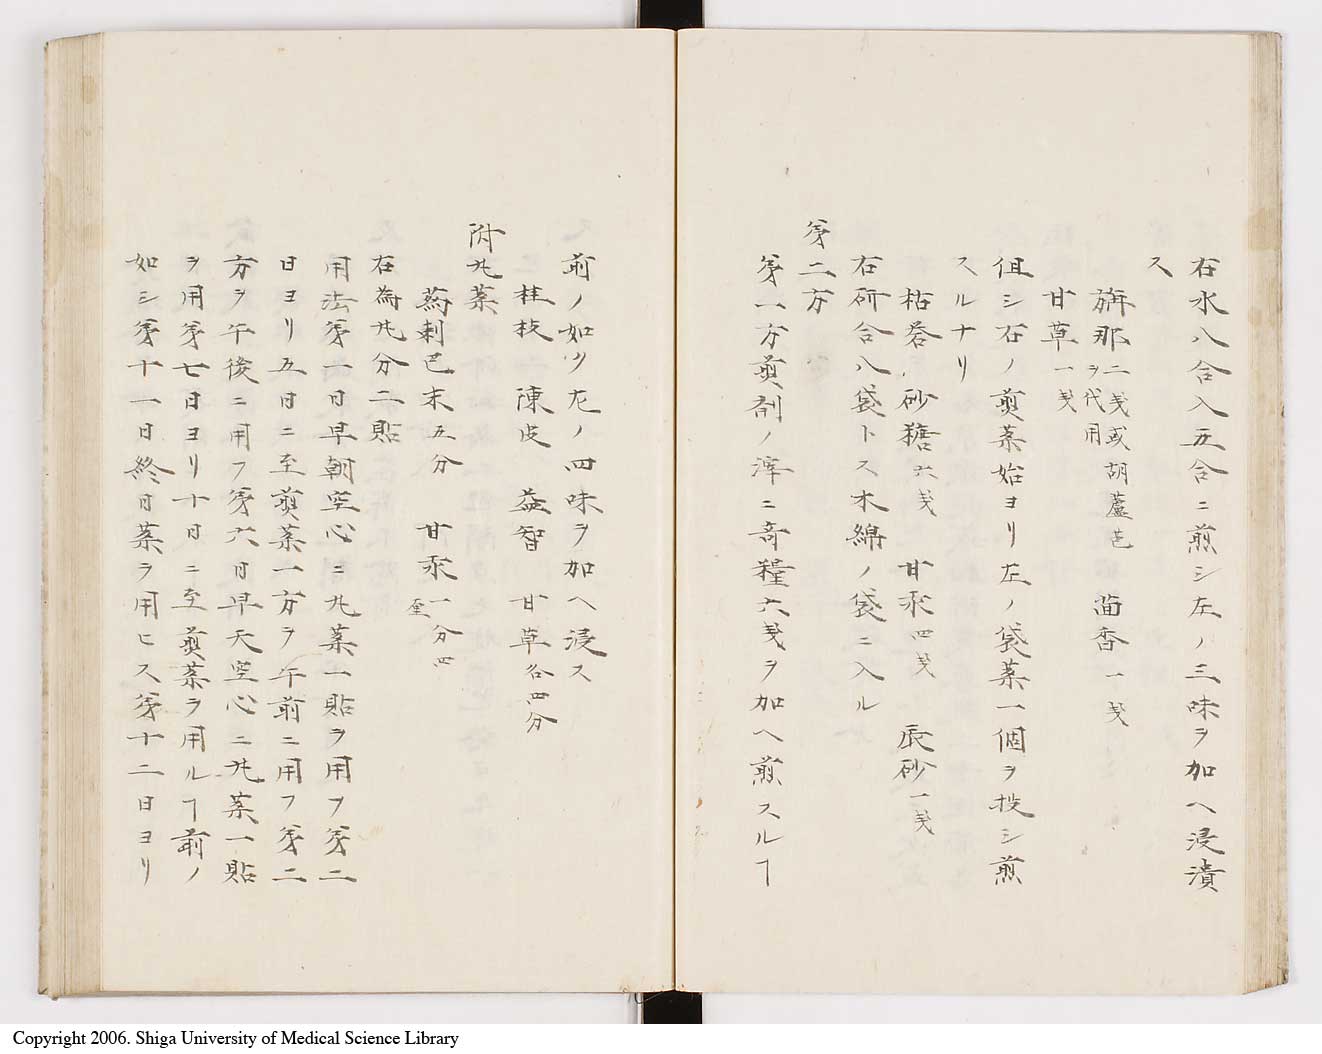 右水八合入五合ニ煎シ左ノ三味ヲ加ヘ浸漬
ス
旃那二戔或胡蘆芭ヲ代用 茴香一戔
甘草一戔
但シ右ノ煎薬始ヨリ左ノ袋薬一個ヲ投シ煎
スルナリ
枯礬 砂糖六戔 甘汞四戔 辰砂一戔
右研合八袋トス木綿ノ袋ニ入ル
第二方
第一方煎剤ノ滓ニ奇糧六戔ヲ加ヘ煎スルヿ
前ノ如ク左ノ四味ヲ加ヘ浸ス
桂枝 陳皮 益智 甘草各四分
附丸薬
葯剌巴末五分 甘汞一分四厘
右為丸分二貼
用法第一日早朝空心ニ丸薬一貼ヲ用フ第二
日ヨリ五日ニ至煎薬一方ヲ午前ニ用フ第二
方ヲ午後ニ用フ第六日早天空心ニ丸薬一貼
ヲ用第七日ヨリ十日ニ至煎薬ヲ用ルヿ前ノ
如シ第十一日終日薬ヲ用ヒス第十二日ヨリ
Copyright 2006. Shiga University of Medical Science Library